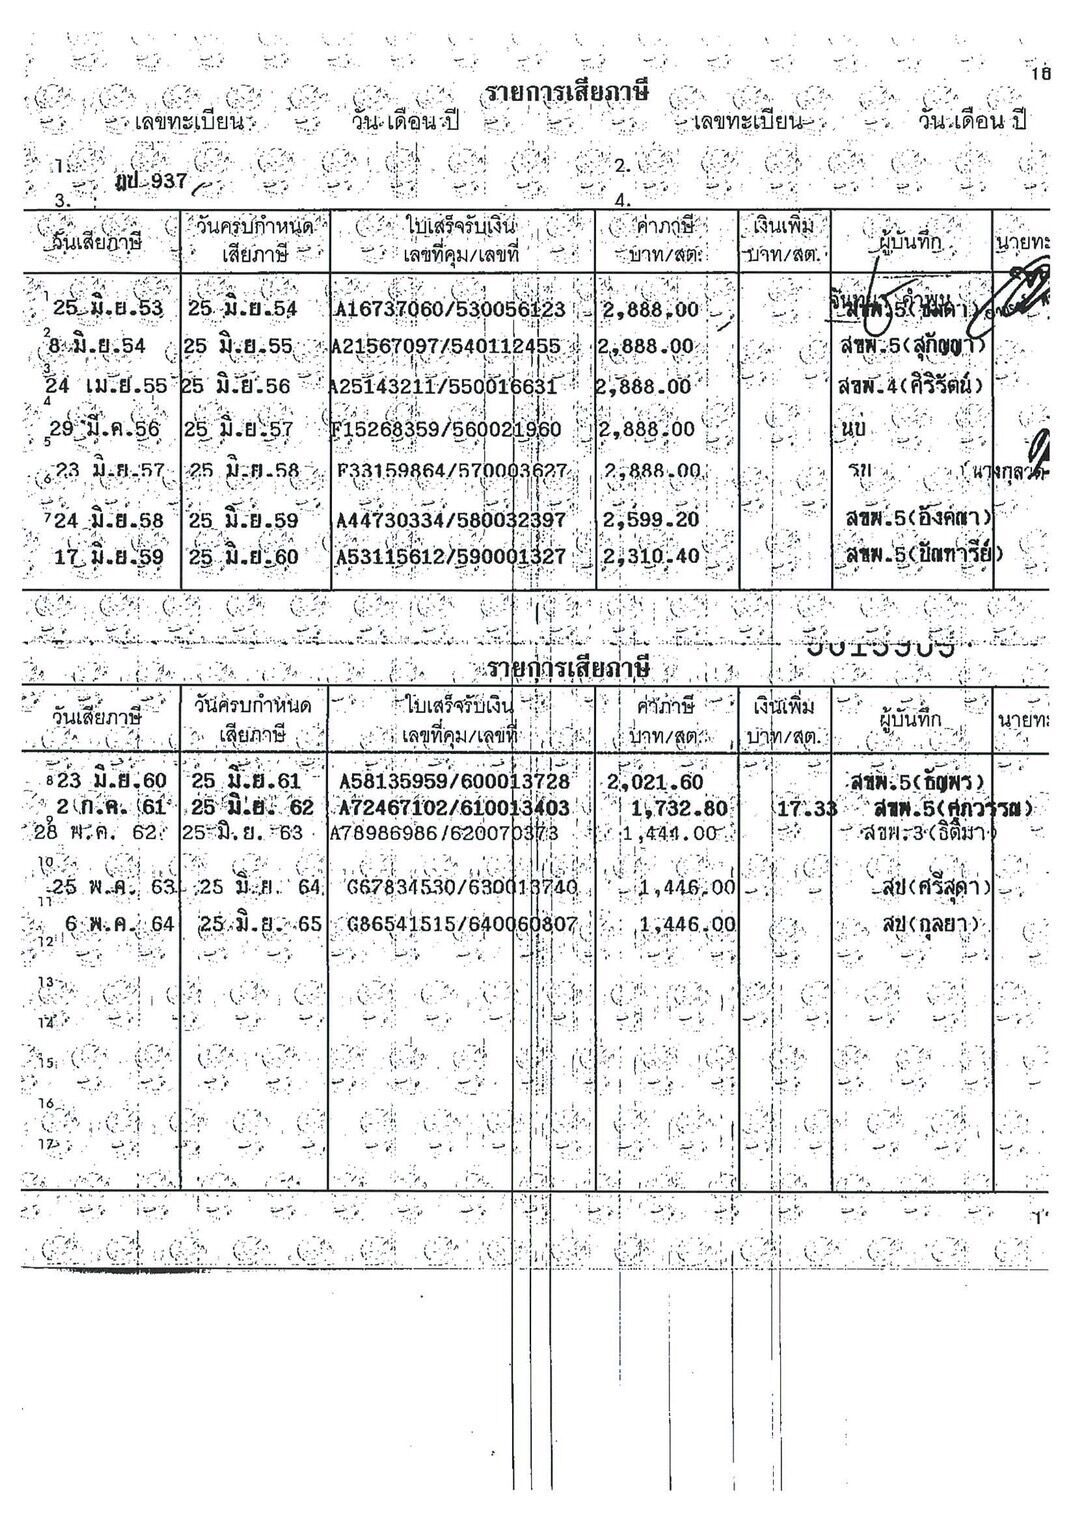 18
รายการเสียภาษี
เลขทะเบียน วัน เดือน ปี เลขทะเบียน วัน เดือน ปี
1. 2.
ฎป 937
3. 4.
วันเสียภาษี วันครบกำหนดเสียภาษี ใบเสร็จรับเงิน เลขที่คุม/เลขที่ ค่าภาษี บาท/สต. เงินเพิ่ม บาท/สต. ผู้บันทึก นายทะ
1 25 มิ.ย.53 25 มิ.ย.54 A16737060/530056123 2,888.00 สขพ.5(ชมดา)
2 8 มิ.ย.54 25 มิ.ย.55 A21567097/540112455 2,888.00 สขพ.5(สุกัญญา)
3 24 เม.ย.55 25 มิ.ย.56 A25143211/550016631 2,888.00 สขพ.4(ศิริรัตน์)
4 29 มี.ค.56 25 มิ.ย.57 F15268359/560021960 2,888.00 นข
5 23 มิ.ย.57 25 มิ.ย.58 F33159864/570003627 2,888.00 รข (นางกุลวดี
6
7 24 มิ.ย.58 25 มิ.ย.59 A44730334/580032397 2,599.20 สขพ.5(อังคณา)
17 มิ.ย.59 25 มิ.ย.60 A53115612/590001327 2,310.40 สขพ.5(ปัณฑารีย์)
รายการเสียภาษี
วันเสียภาษี วันครบกำหนดเสียภาษี ใบเสร็จรับเงิน เลขที่คุม/เลขที่ ค่าภาษี บาท/สต. เงินเพิ่ม บาท/สต. ผู้บันทึก นายทะ
8 23 มิ.ย.60 25 มิ.ย.61 A58135959/600013728 2,021.60 สขพ.5(ธัญพร)
9 2 ก.ค. 61 25 มิ.ย. 62 A72467102/610013403 1,732.80 17.33 สขพ.5(ศุภวรรณ)
28 พ.ค. 62 25 มิ.ย. 63 A78986986/620070373 1,444.00 สขพ.3(ธิติมา)
10
25 พ.ค. 63 25 มิ.ย. 64 G67834530/630013740 1,446.00 สป(ศรีสุดา)
11
6 พ.ค. 64 25 มิ.ย. 65 G86541515/640060807 1,446.00 สป(กุลยา)
12
13
14
15
16
17